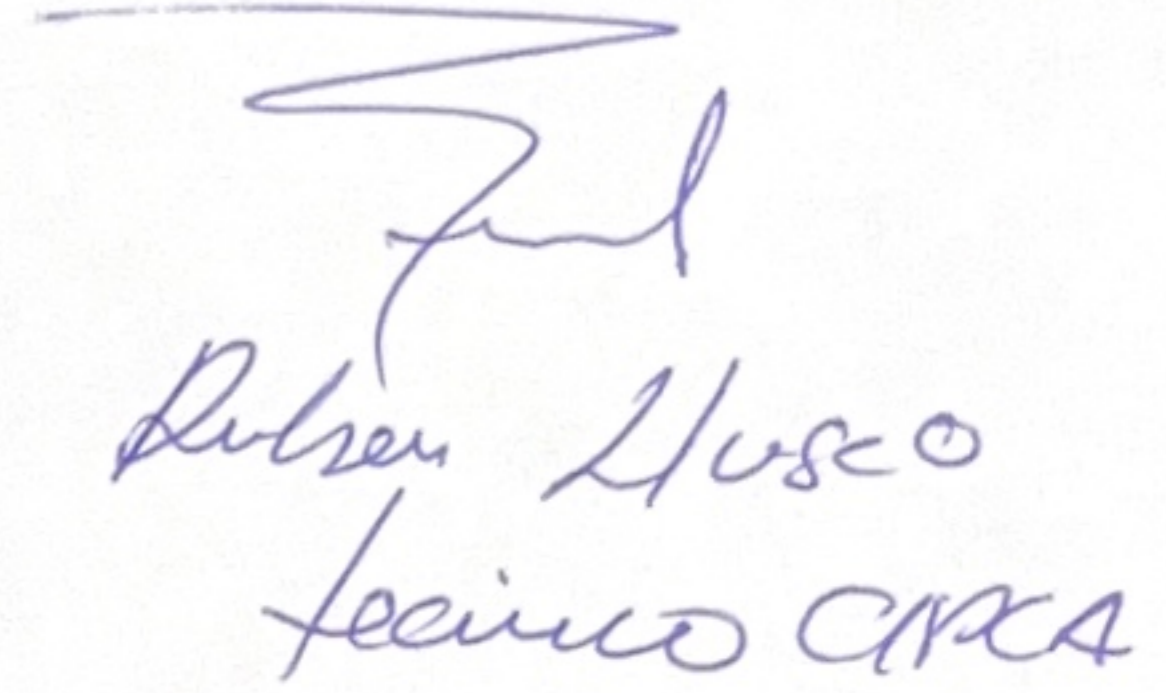 Ruben Llusco
Tecnico CIPCA